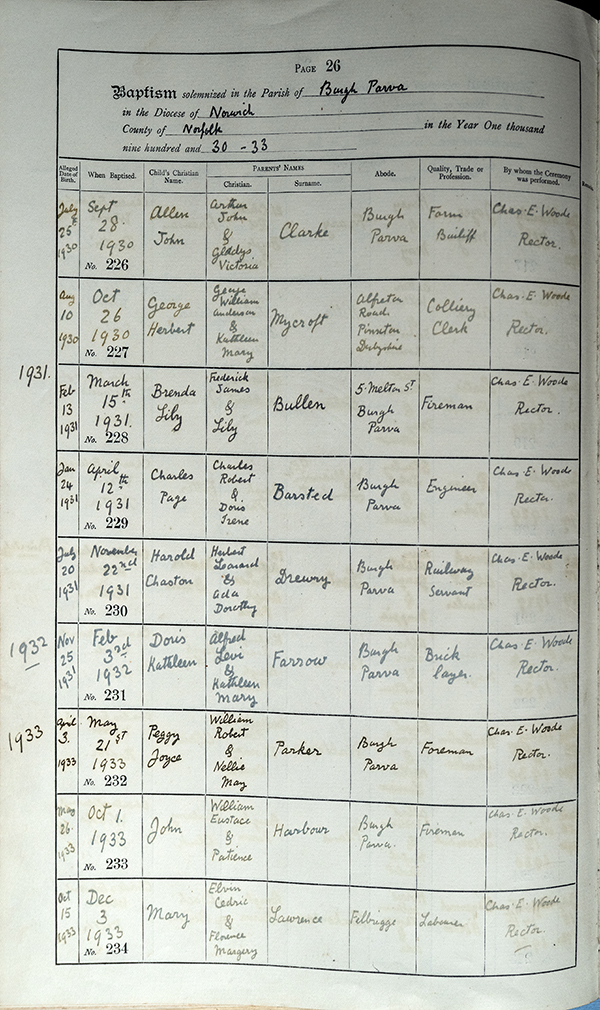 PAGE 26
Baptism solemnized in the Parish of Burgh Parva
in the Diocese of Norwich
County of Norfolk in the Year One thousand
nine hundred and 30 - 33
Alleged Date of Birth. When Baptised. Child's Christian Name. PARENTS' NAMES Christian. Surname. Abode. Quality, Trade or Profession. By whom the Ceremony was performed.
July 25th 1930 Sept 28. 1930 No. 226 Allen John Arthur John & Gladys Victoria Clarke Burgh Parva Farm Bailiff Chas. E. Woode Rector.
Aug 10 1930 Oct 26 1930 No. 227 George Herbert George William Anderson & Kathleen Mary Mycroft Alfreton Road. Pinxton Derbyshire Colliery Clerk Chas. E. Woode Rector.
1931.
Feb 13 1931 March 15th 1931. No. 228 Brenda Lily Frederick James & Lily Bullen 5. Melton St Burgh Parva Fireman Chas. E. Woode Rector.
Jan 24 1931 April 12th 1931 No. 229 Charles Page Charles Robert & Doris Irene Barsted Burgh Parva Engineer Chas. E. Woode Rector.
July 20 1931 November 22nd 1931 No. 230 Harold Chaston Herbert Leonard & Ada Dorothy Drewry Burgh Parva Railway Servant Chas. E. Woode Rector.
1932
Nov 25 1931 Feb 3rd 1932 No. 231 Doris Kathleen Alfred Levi & Kathleen Mary Farrow Burgh Parva Brick layer. Chas. E. Woode Rector.
1933
April 3. 1933 May 21st 1933 No. 232 Peggy Joyce William Robert & Nellie May Parker Burgh Parva Foreman Chas. E. Woode Rector.
May 26. 1933 Oct 1. 1933 No. 233 John William Eustace & Patience Harbour Burgh Parva. Fireman Chas. E. Woode Rector.
Oct 15 1933 Dec 3 1933 No. 234 Mary Elvin Cedric & Florence Margery Lawrence Felbrigge Labourer Chas. E. Woode Rector.